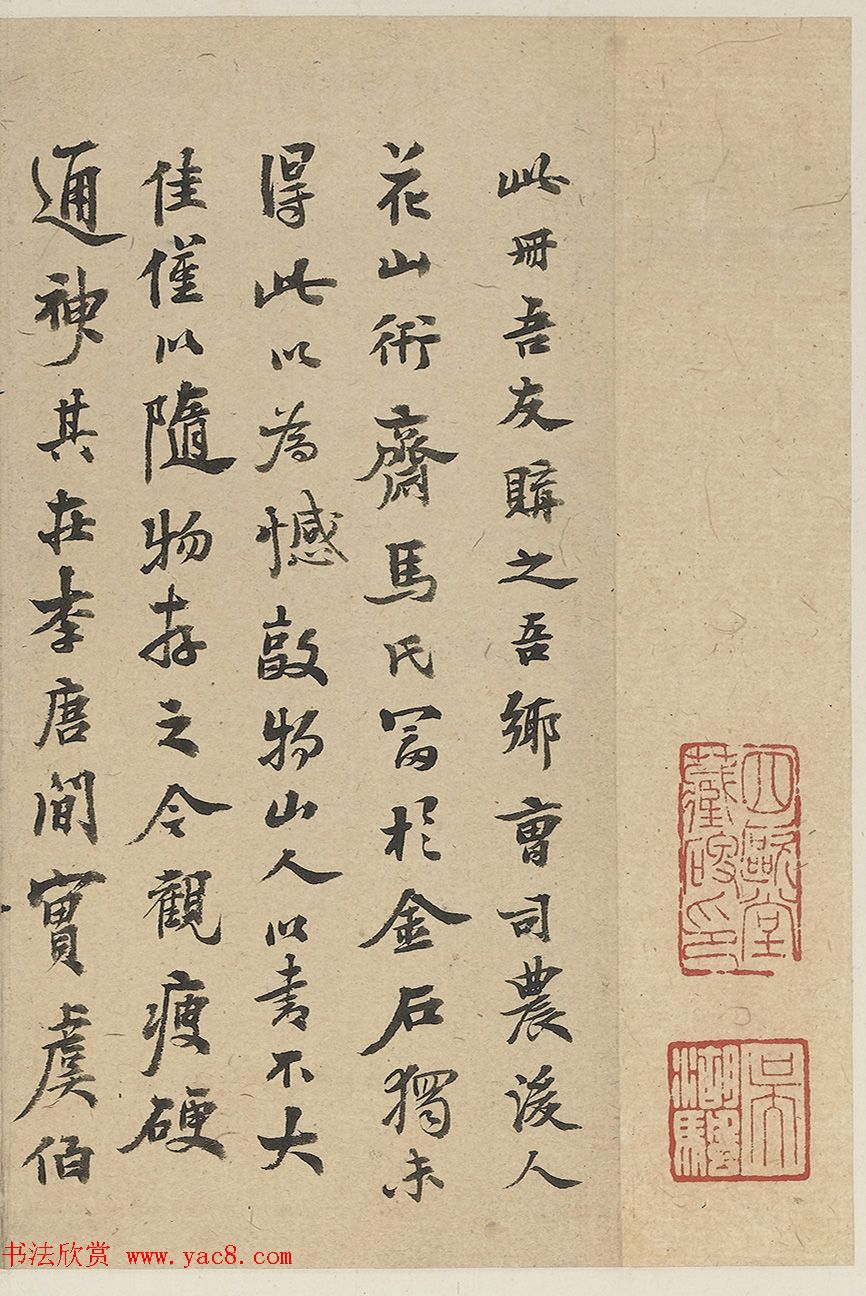 此冊吾友購之吾鄉曹司農後人
花山術齋馬氏富於金石獨未
得此以為憾敵物山人以書不大
佳僅以隨物存之今觀瘦硬
通神其在李唐間實虞伯
四歐堂藏
吳湖
书法欣赏 www.yac8.com